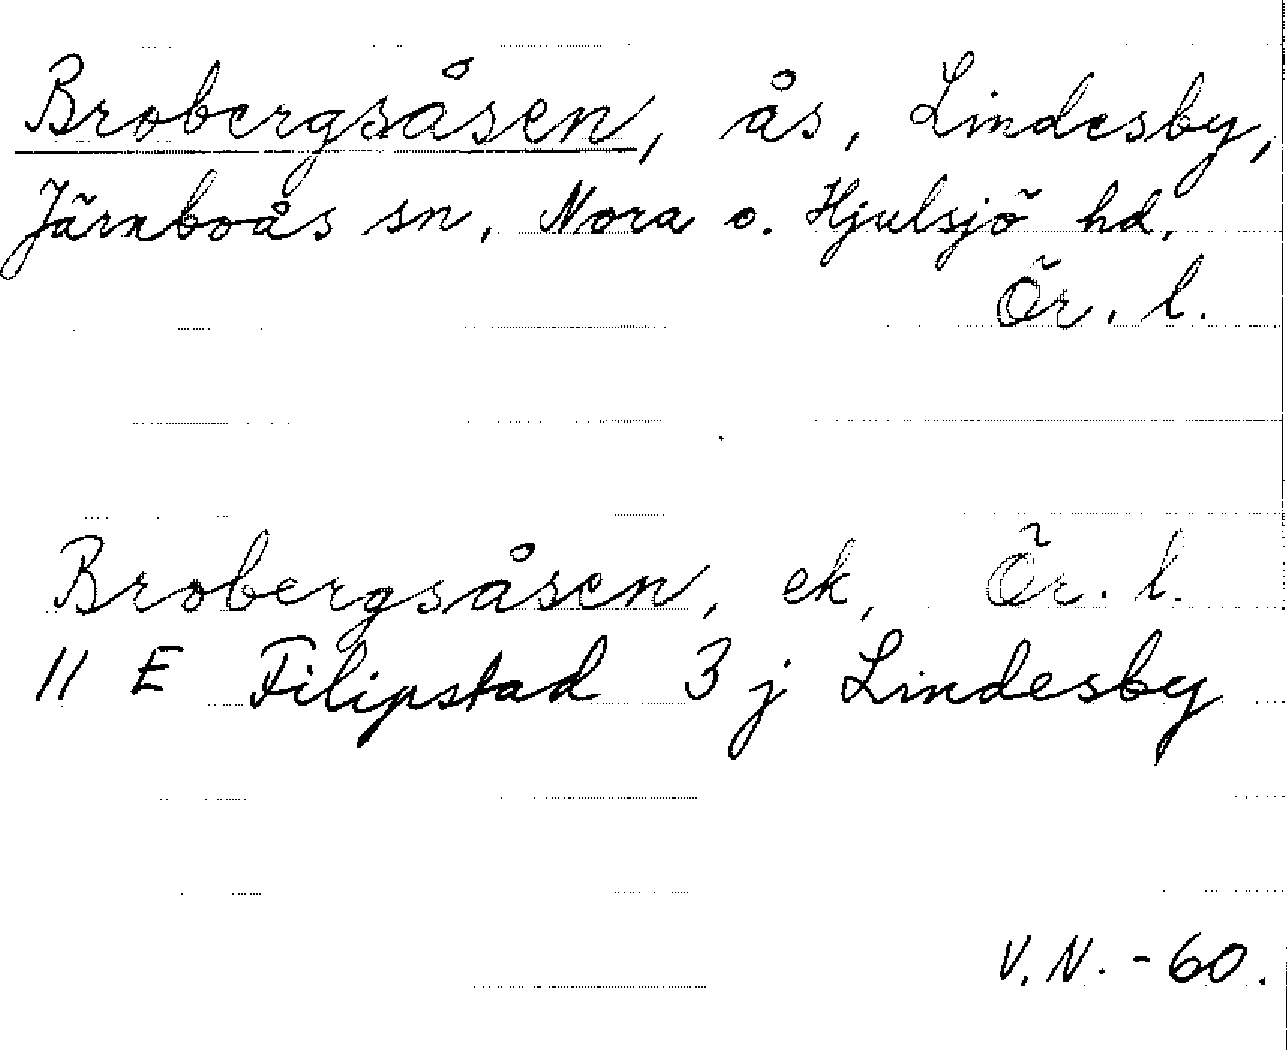 Brobergsåsen, ås, Lindesby,
Järnboås sn, Nora o. Hjulsjö hd,
Ör. l.
Brobergsåsen, ek, Ör. l.
11 E Filipstad 3 j Lindesby
V.N. -60.